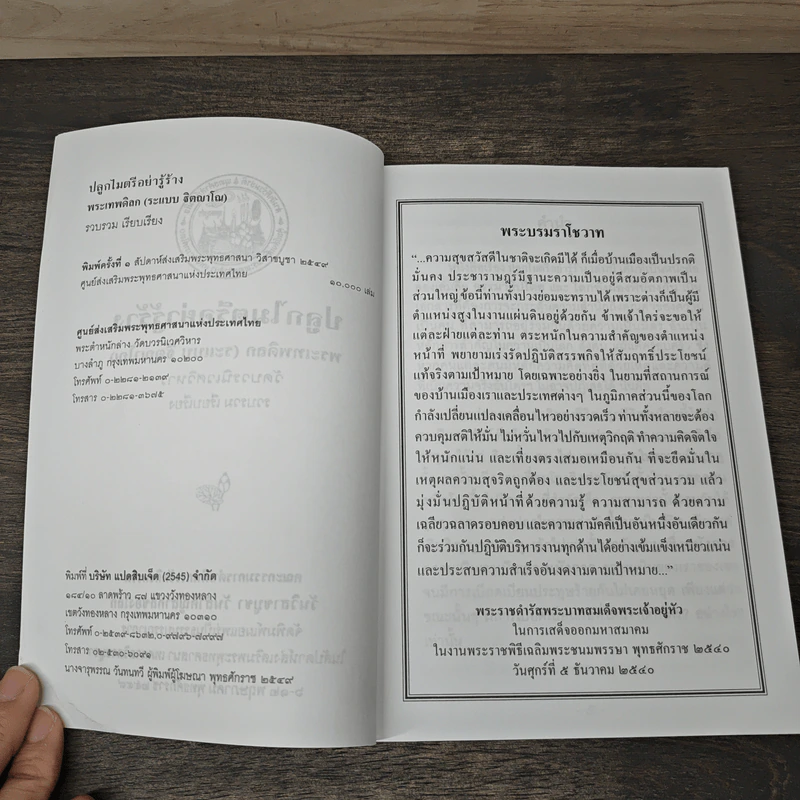 ปลูกไมตรีอย่ารู้ร้าง
พระเทพดิลก (ระแบบ ฐิตญาโณ)
รวบรวม เรียบเรียง
พิมพ์ครั้งที่ ๑ สัปดาห์ส่งเสริมพระพุทธศาสนา วิสาขบูชา ๒๕๔๙
ศูนย์ส่งเสริมพระพุทธศาสนาแห่งประเทศไทย
๑๐,๐๐๐ เล่ม
ศูนย์ส่งเสริมพระพุทธศาสนาแห่งประเทศไทย
พระตำหนักล่าง วัดบวรนิเวศวิหาร
บางลำภู กรุงเทพมหานคร ๑๐๒๐๐
โทรศัพท์ ๐-๒๒๘๑-๒๑๓๙
โทรสาร ๐-๒๒๘๑-๓๖๗๕
พิมพ์ที่ บริษัท แปดสิบเจ็ด (2545) จำกัด
๑๘๔/๑๐ ลาดพร้าว ๘๗ แขวงวังทองหลาง
เขตวังทองหลาง กรุงเทพมหานคร ๑๐๓๑๐
โทรศัพท์ ๐-๒๕๓๙-๘๖๓๒,๐-๙๗๙๖-๗๙๙๗
โทรสาร ๐๒-๕๓๐-๖๐๙๑
นางจารุพรรณ วันทนทวี ผู้พิมพ์ผู้โฆษณา พุทธศักราช ๒๕๔๙
พระบรมราโชวาท
“...ความสุขสวัสดีในชาติจะเกิดมีได้ ก็เมื่อบ้านเมืองเป็นปรกติ
มั่นคง ประชาราษฎร์มีฐานะความเป็นอยู่ดีสมอัตภาพเป็น
ส่วนใหญ่ ข้อนี้ท่านทั้งปวงย่อมจะทราบได้ เพราะต่างก็เป็นผู้มี
ตำแหน่งสูงในงานแผ่นดินอยู่ด้วยกัน ข้าพเจ้าใคร่จะขอให้
แต่ละฝ่ายแต่ละท่าน ตระหนักในความสำคัญของตำแหน่ง
หน้าที่ พยายามเร่งรัดปฏิบัติสรรพกิจให้สัมฤทธิ์ประโยชน์
แท้จริงตามเป้าหมาย โดยเฉพาะอย่างยิ่ง ในยามที่สถานการณ์
ของบ้านเมืองเราและประเทศต่างๆ ในภูมิภาคส่วนนี้ของโลก
กำลังเปลี่ยนแปลงเคลื่อนไหวอย่างรวดเร็ว ท่านทั้งหลายจะต้อง
ควบคุมสติให้มั่น ไม่หวั่นไหวไปกับเหตุวิกฤติ ทำความคิดจิตใจ
ให้หนักแน่น และเที่ยงตรงเสมอเหมือนกัน ที่จะยึดมั่นใน
เหตุผลความสุจริตถูกต้อง และประโยชน์สุขส่วนรวม แล้ว
มุ่งมั่นปฏิบัติหน้าที่ด้วยความรู้ ความสามารถ ด้วยความ
เฉลียวฉลาดรอบคอบ และความสามัคคีเป็นอันหนึ่งอันเดียวกัน
ก็จะร่วมกันปฏิบัติบริหารงานทุกด้านได้อย่างเข้มแข็งเหนียวแน่น
และประสบความสำเร็จอันงดงามตามเป้าหมาย...”
พระราชดำรัสพระบาทสมเด็จพระเจ้าอยู่หัว
ในการเสด็จออกมหาสมาคม
ในงานพระราชพิธีเฉลิมพระชนมพรรษา พุทธศักราช ๒๕๔๐
วันศุกร์ที่ ๕ ธันวาคม ๒๕๔๐